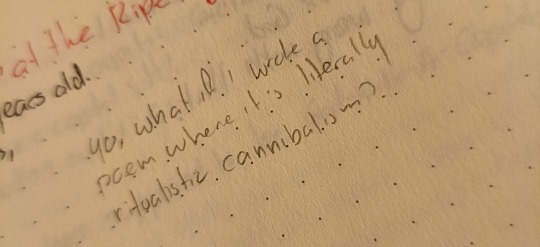 at the Ripe
years old.
yo, what if i wrote a
poem where it's literally
ritualistic cannibalism?